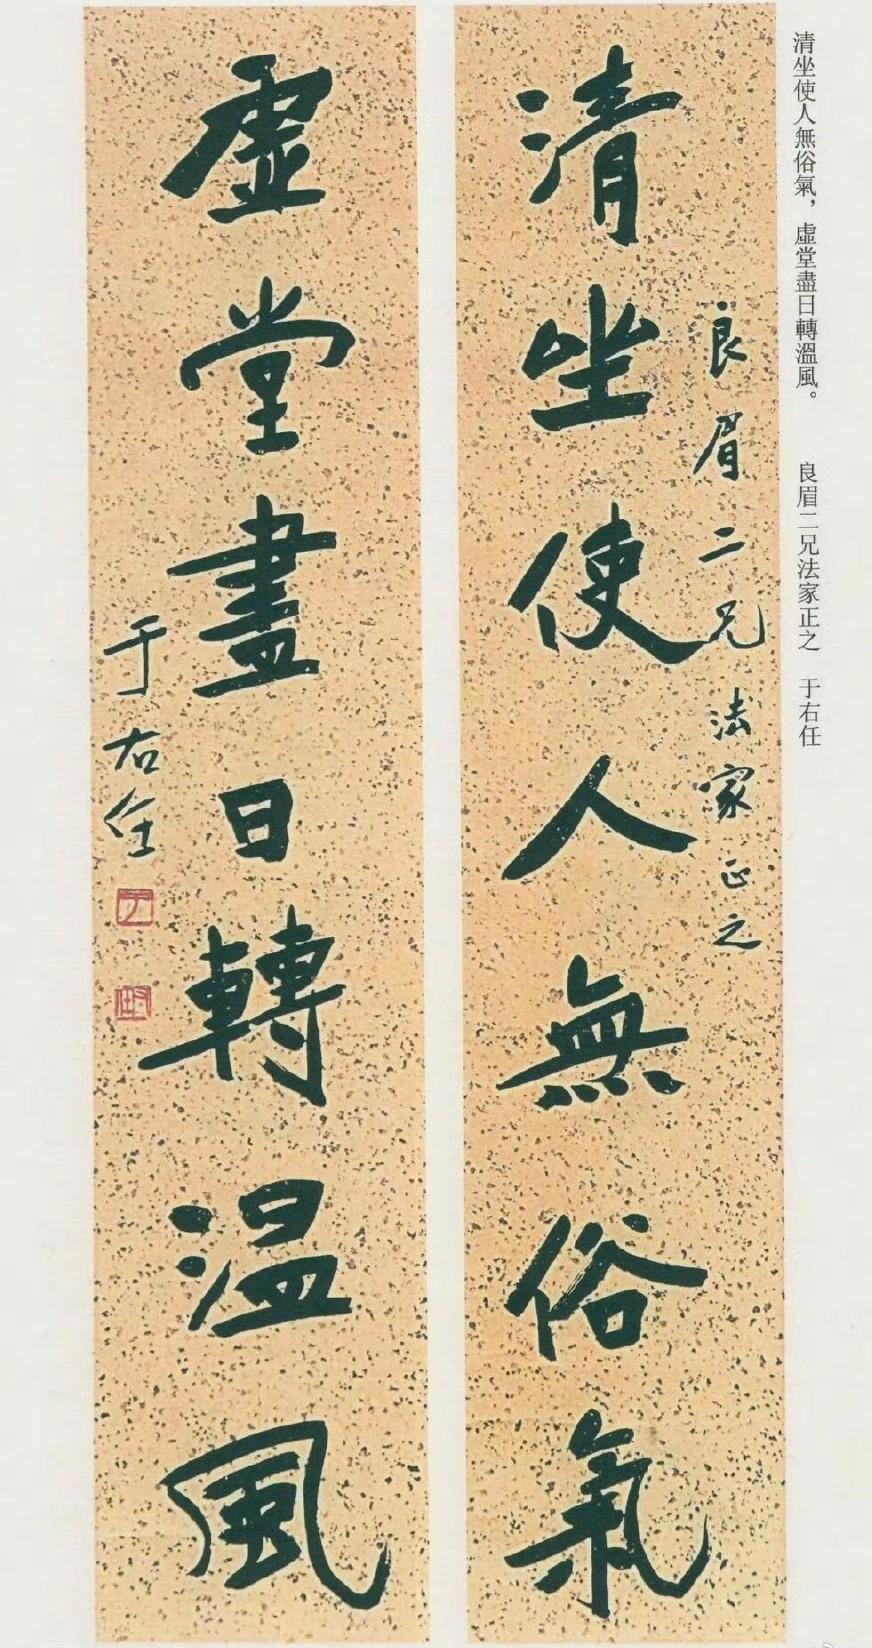 清坐使人無俗氣，虛堂盡日轉溫風。　良眉二兄法家正之　于右任
良眉二兄法家正之
清坐使人無俗氣
虛堂盡日轉溫風
于右任